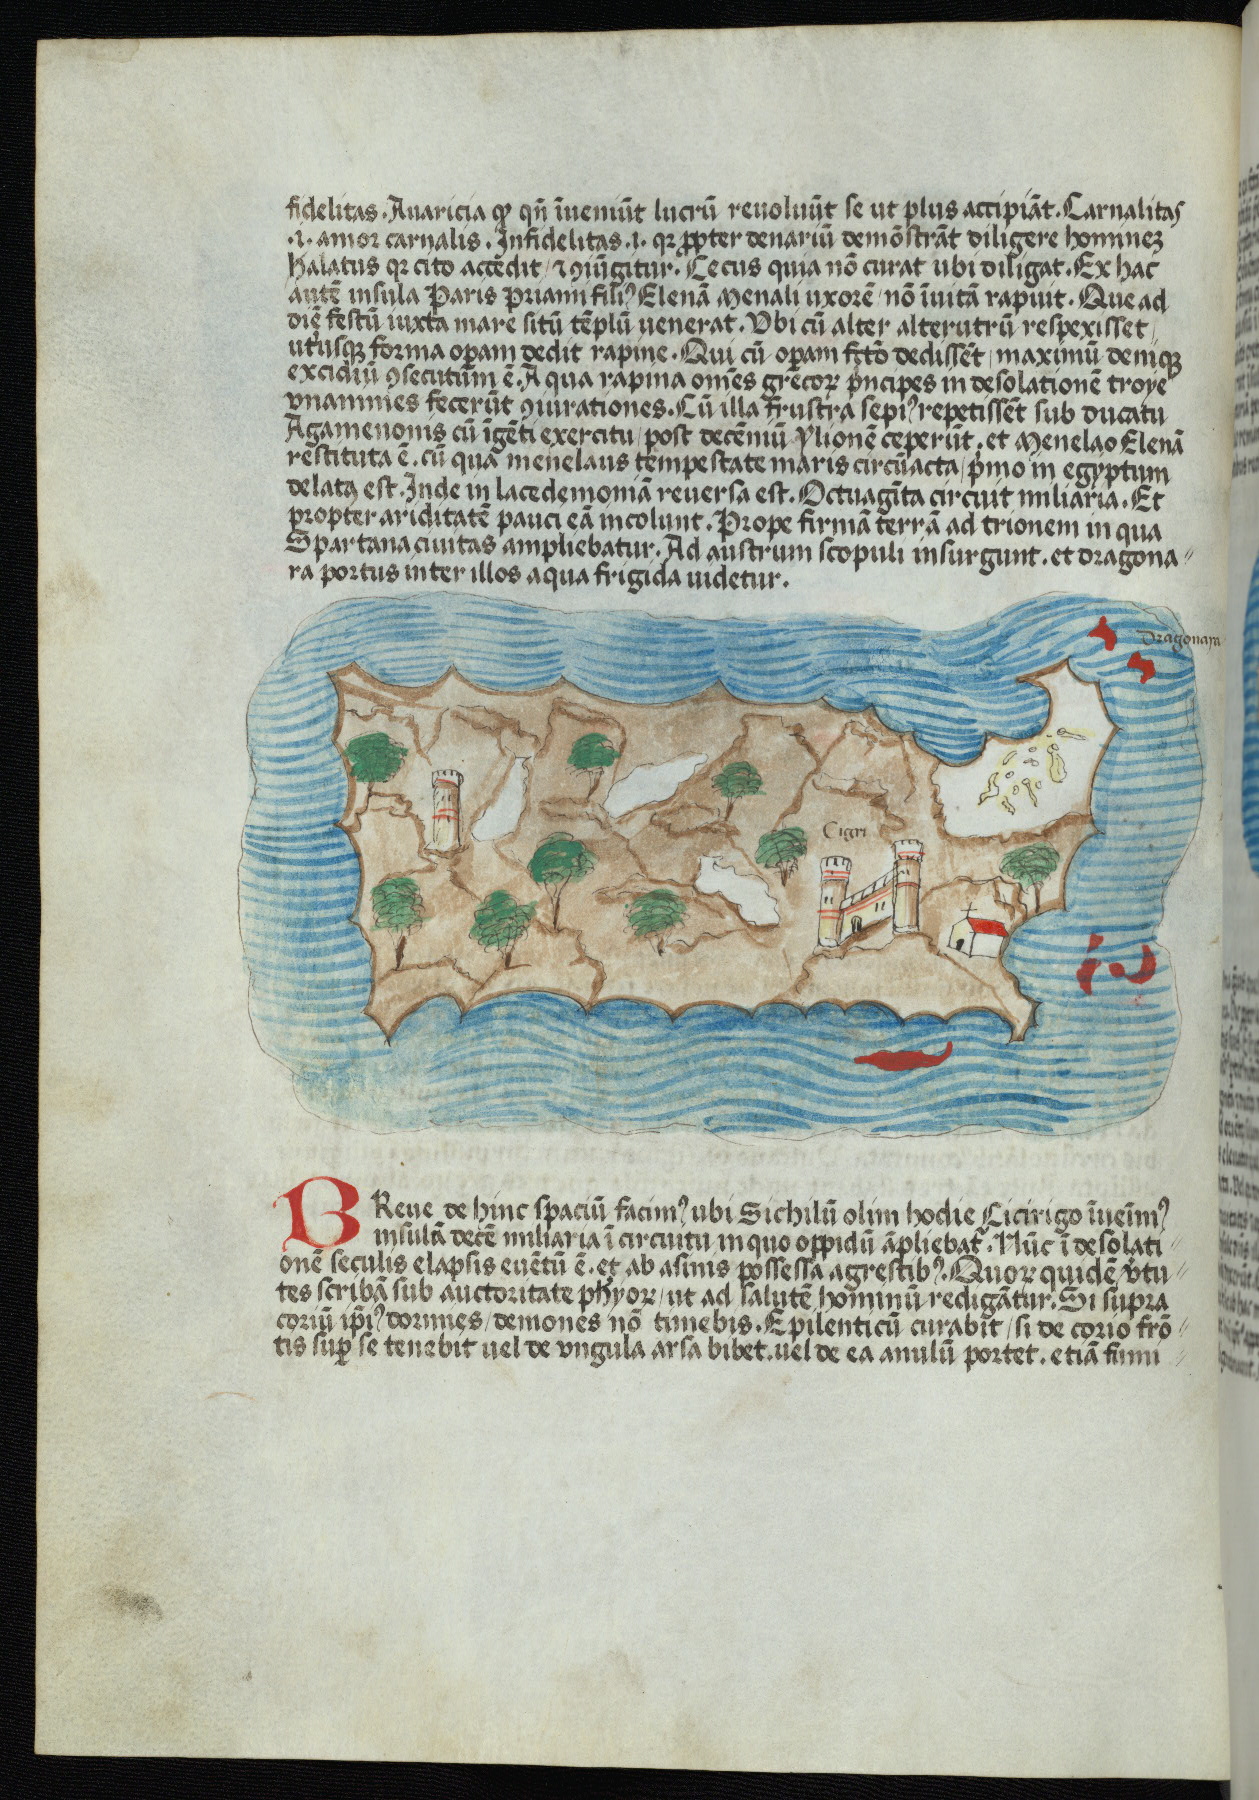 fidelitas. Auaricia qꝫ qn̄ īueniūt lucrū reuoluūt se ut plus accipiāt. Carnalitas
.i. amor carnalis. Infidelitas .i. qꝛ ꝓpter denariū demōstrāt diligere hominez
halatus qꝛ cito accēdit / ⁊ ꝯiūgitur. Cecus quia nō curat ubi diligat. Ex hac
autē insula Paris Priami filiꝰ Elenā Menali uxorē / nō īuitā rapuit. Que ad
diē festū iuxta mare sitū tēplū uenerat. Vbi cū alter alterutrū respexisset /
utriusqꝫ forma opam dedit rapine. Qui cū opam fctō dedissēt / maximū deniqꝫ
excidiū ꝯsecutum ē. A qua rapina omēs grecoꝝ pncipes in desolationē troye
vnanimes fecerūt ꝯiurationes. Cū illa frustra sepiꝰ repetissēt sub ducatu
Agamenonis cū īgēti exercitu / post decēniū ylionē ceperūt. et Menelao Elenā
restituta ē. cū qua menelaus tempestate maris circūacta / pmo in egyptum
delatꝰ est. Inde in lacedemoniā reuersa est. Octuagīta circuit miliaria. Et
propter ariditatē pauci eā incolunt. Prope firmā terrā ad trionem in qua
Spartana ciuitas ampliebatur. Ad austrum scopuli insurgunt. et dragona〃
ra portus inter illos aqua frigida uidetur.
Dragonara
Cigri
BReue de hinc spaciū facimꝰ ubi Sichilū olim hodie Cicirigo īueīmꝰ
insulā decē miliaria ī circuitu in quo oppidū āpliebat. Nūc ī desolati
onē seculis elapsis euētū ē. et ab asinis possessa agrestibꝰ. Quoꝝ quidē v̄tu〃
tes scribā sub auctoritate phyoꝝ / ut ad salutē hominū redigātur. Si supra
coriū ipiꝰ dormies / demones nō timebis. Epilenticū curabit / si de corio frō〃
tis sup se tenebit uel de vngula arsa bibet. uel de ea anulū portet. etiā fumi〃